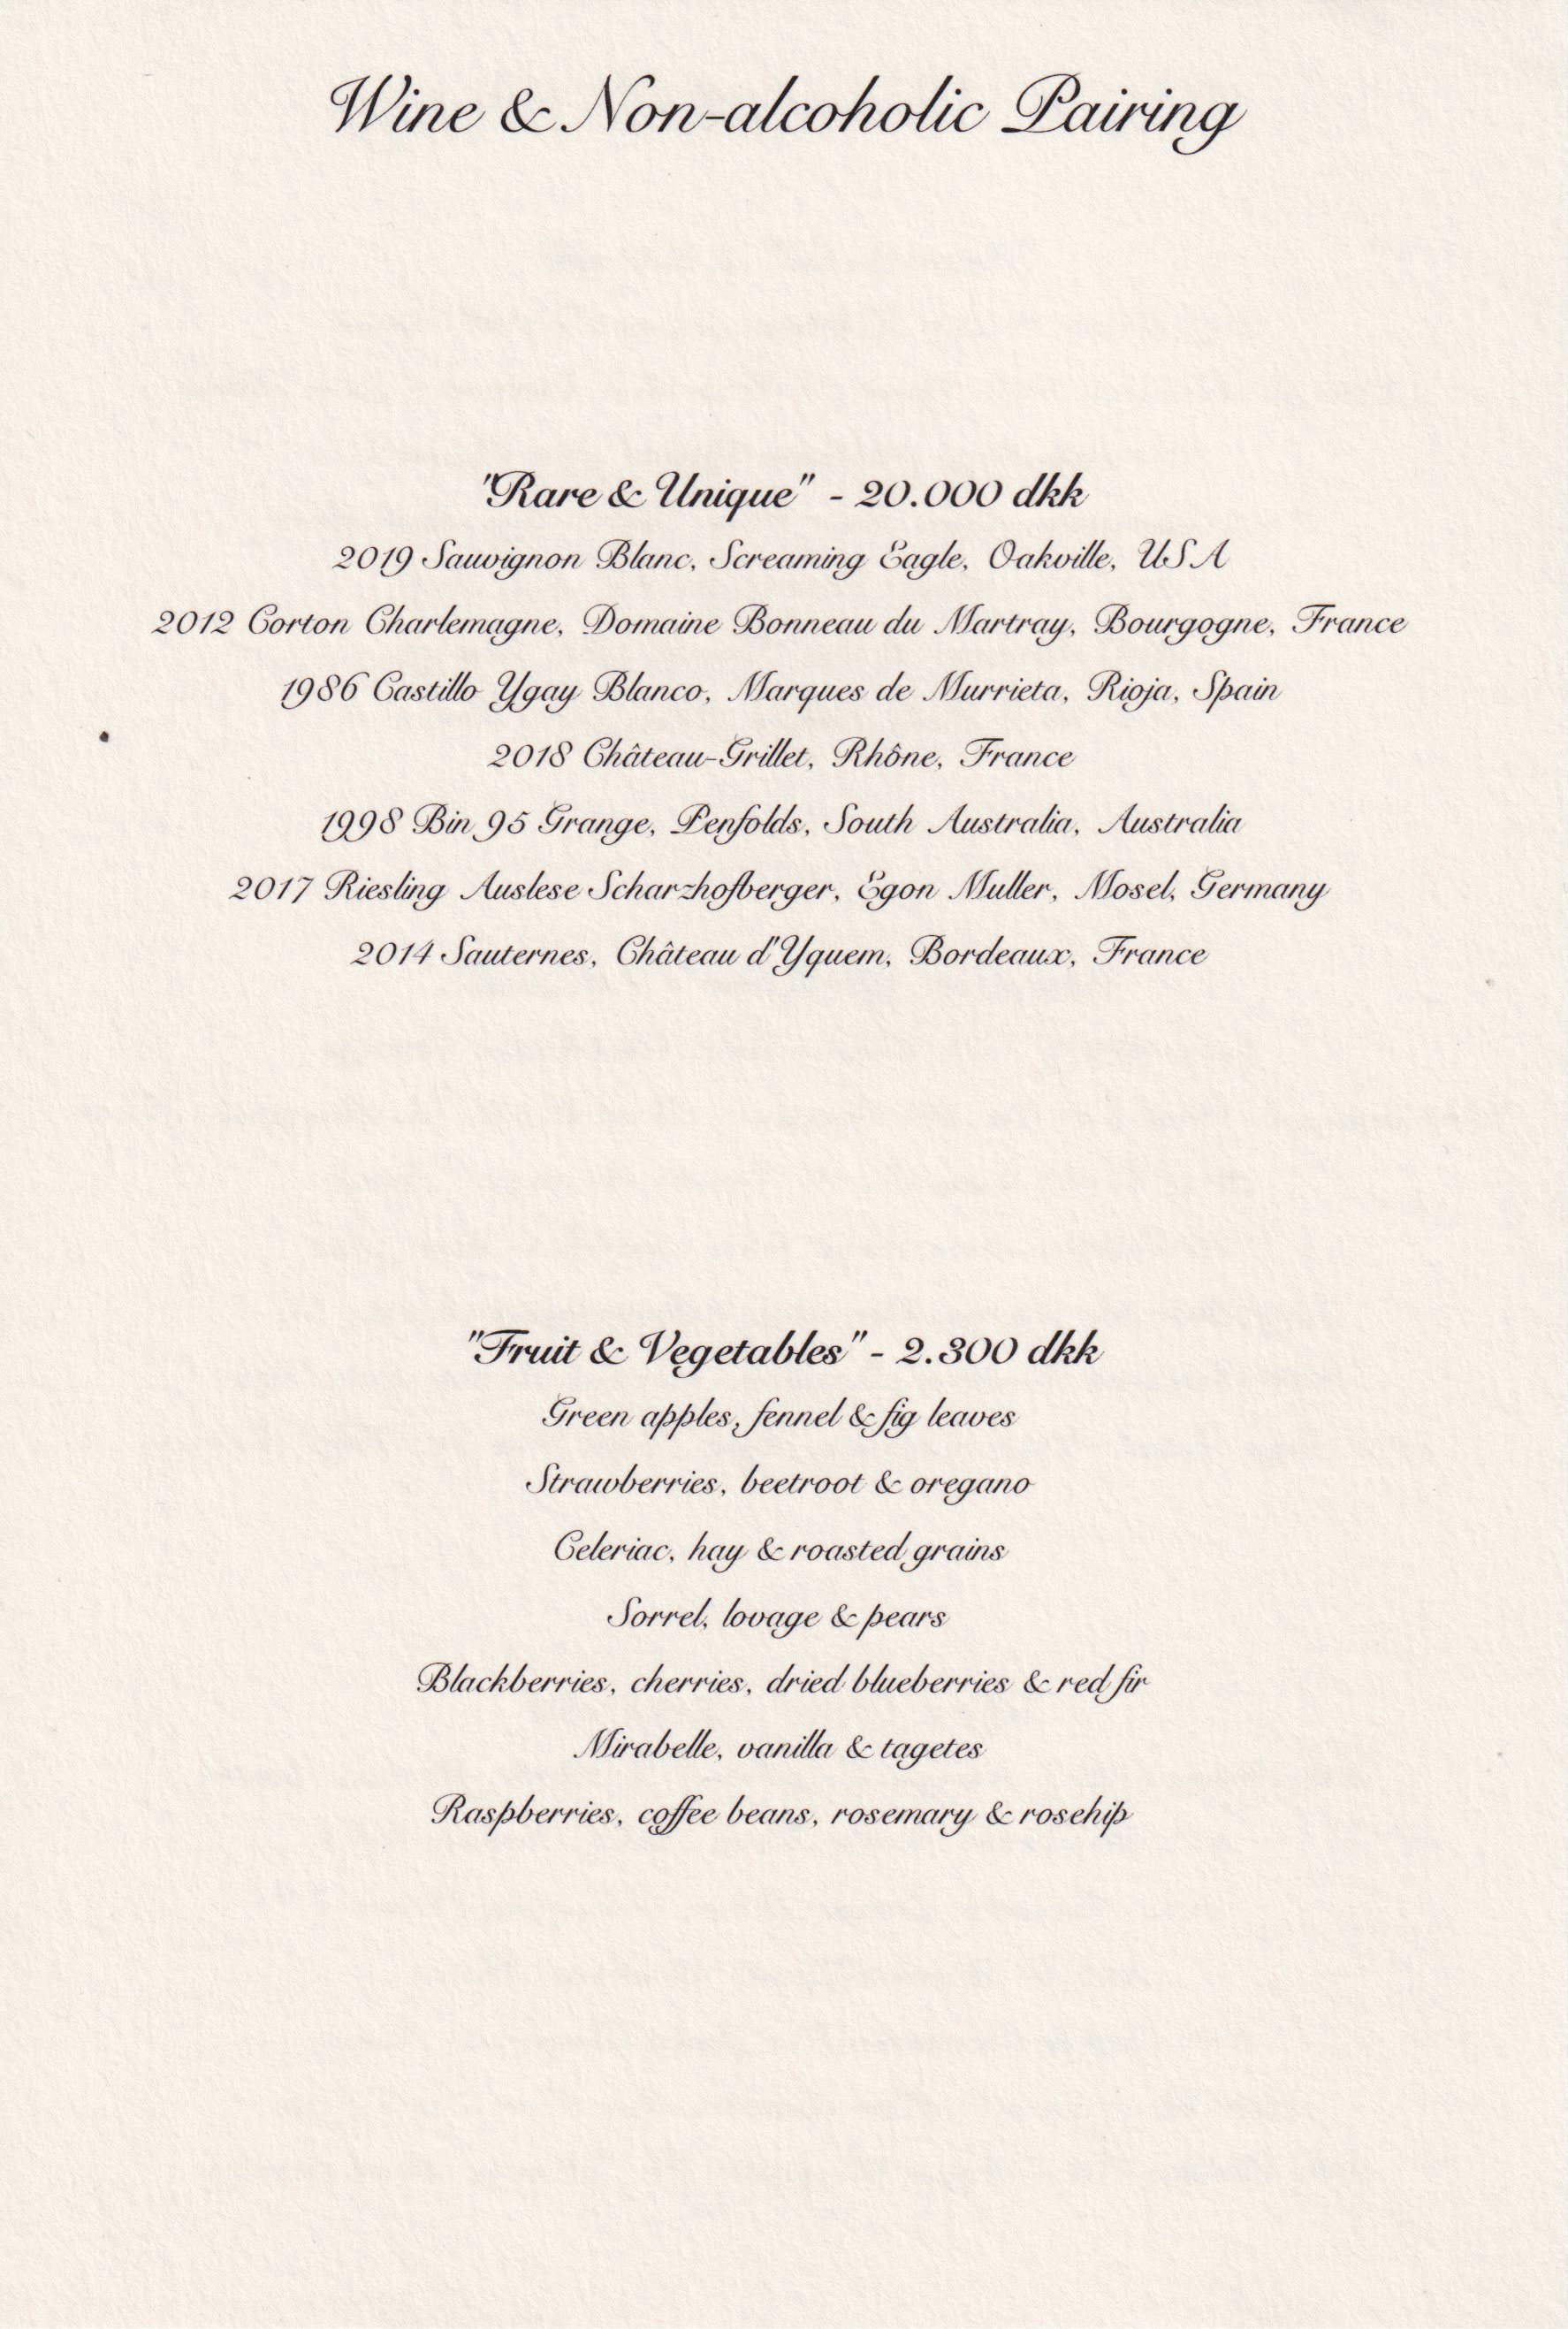 Wine & Non-alcoholic Pairing
"Rare & Unique" - 20.000 dkk
2019 Sauvignon Blanc, Screaming Eagle, Oakville, USA
2012 Corton Charlemagne, Domaine Bonneau du Martray, Bourgogne, France
1986 Castillo Ygay Blanco, Marques de Murrieta, Rioja, Spain
2018 Château-Grillet, Rhône, France
1998 Bin 95 Grange, Penfolds, South Australia, Australia
2017 Riesling Auslese Scharzhofberger, Egon Muller, Mosel, Germany
2014 Sauternes, Château d'Yquem, Bordeaux, France
"Fruit & Vegetables" - 2.300 dkk
Green apples, fennel & fig leaves
Strawberries, beetroot & oregano
Celeriac, hay & roasted grains
Sorrel, lovage & pears
Blackberries, cherries, dried blueberries & red fir
Mirabelle, vanilla & tagetes
Raspberries, coffee beans, rosemary & rosehip